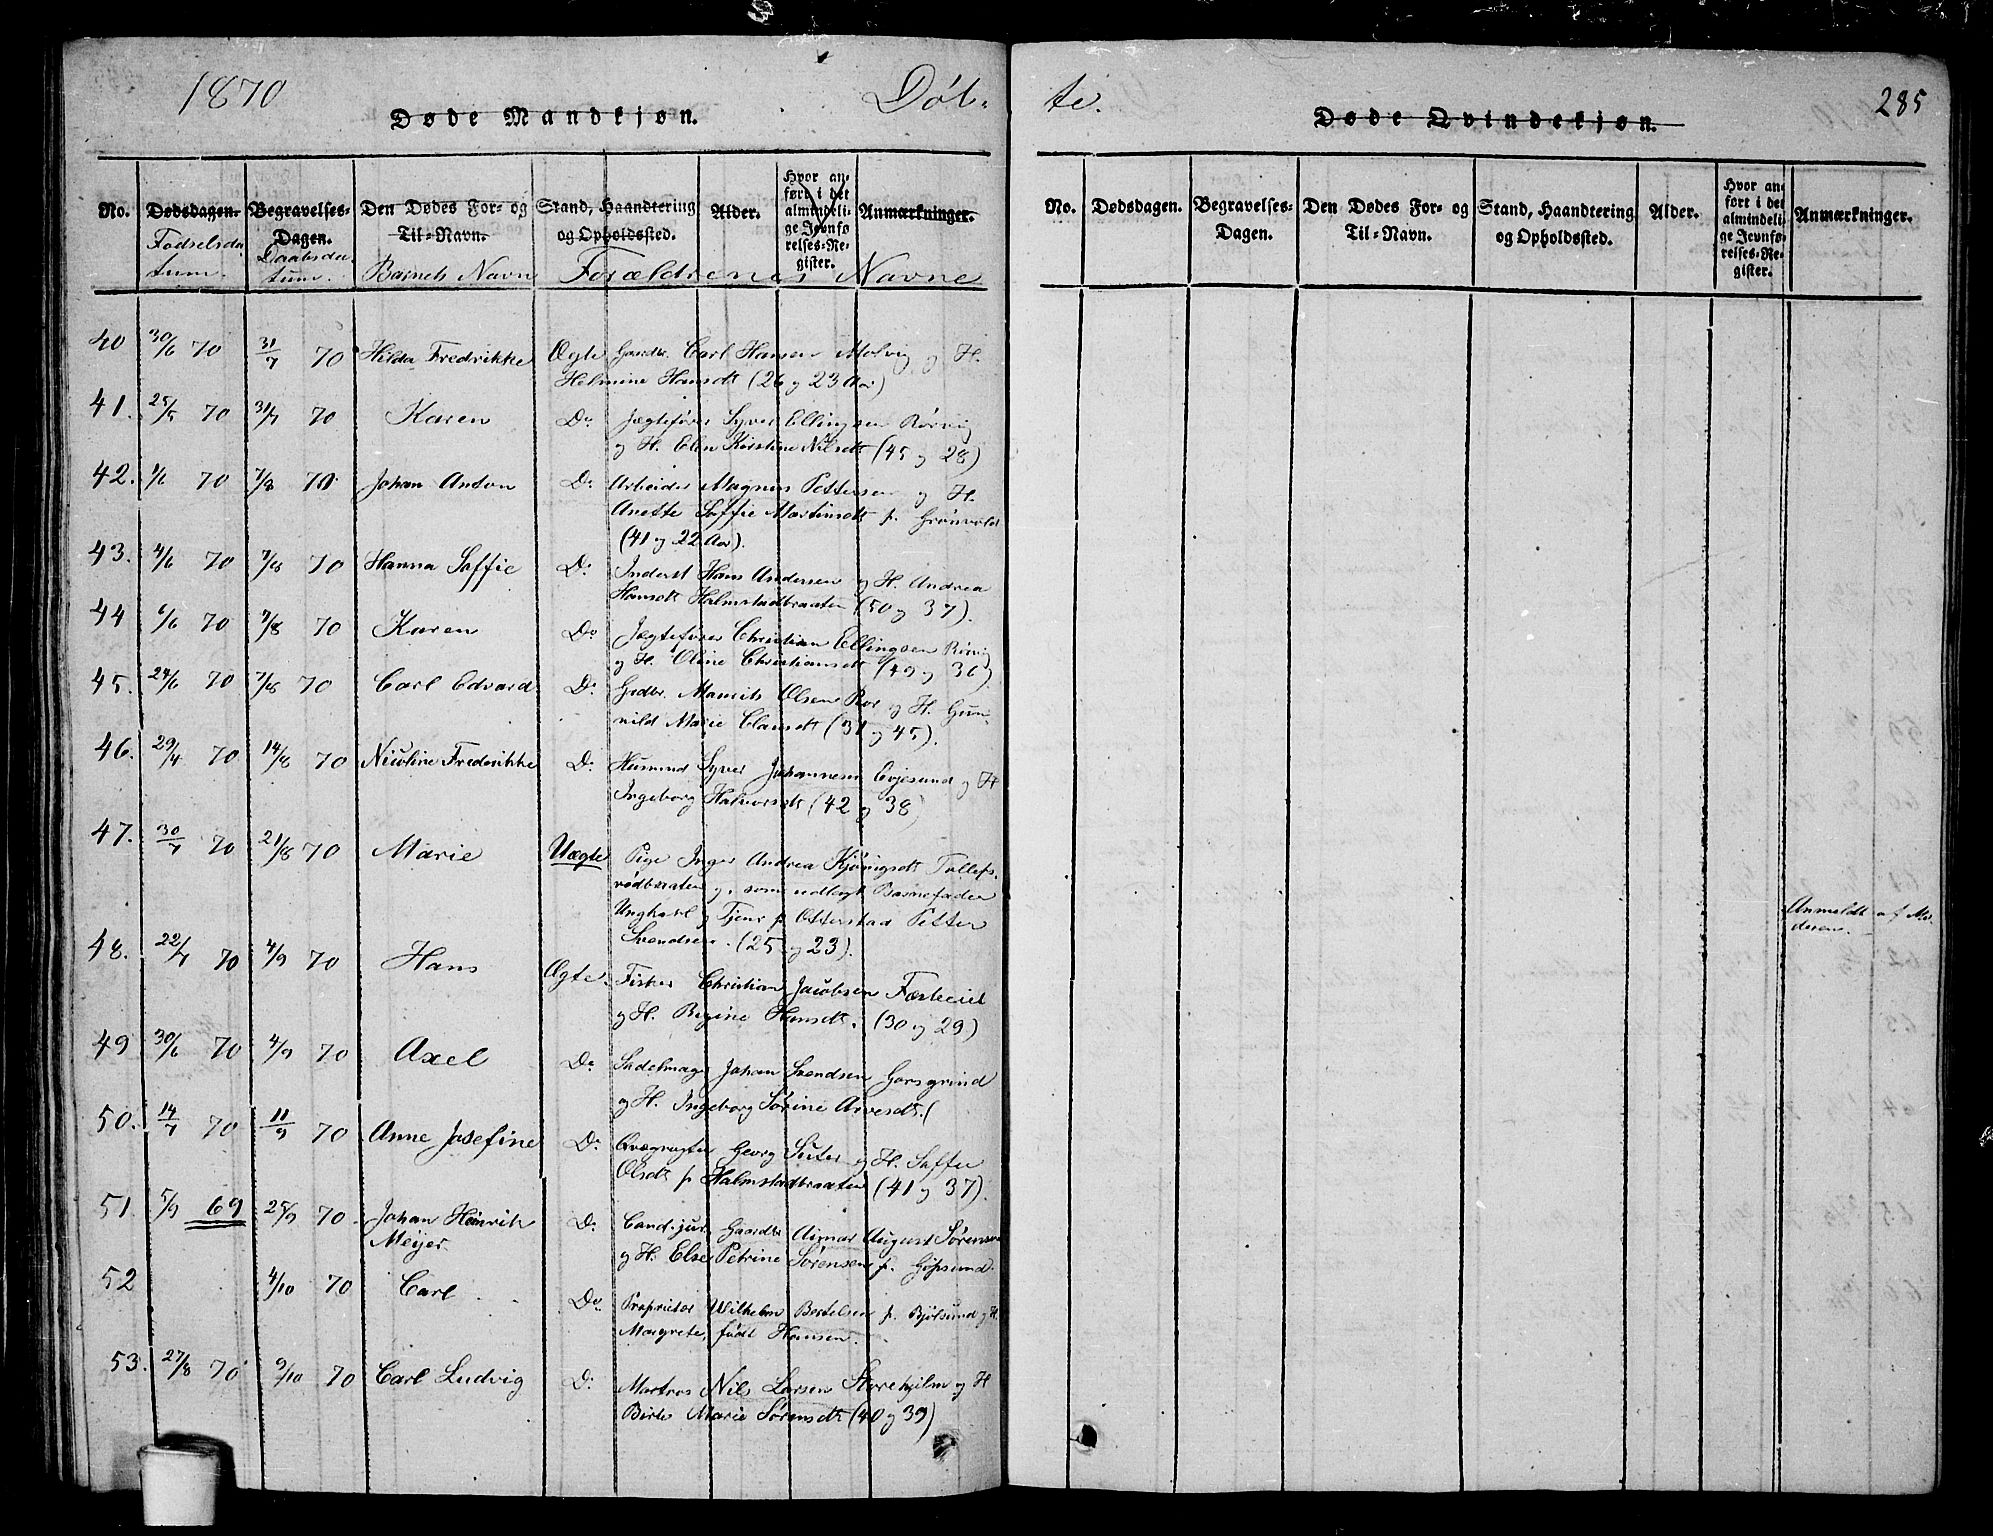 1870
Døb-
te.
285
Døde Mandkjøn.
Døde Qvindekjøn.
No. Dødsdagen. Begravelses-Dagen. Den Dødes For- og Til-Navn. Stand, Haandtering og Opholdssted. Alder. Hvor anført i det almindelige Jevnførelses-Register. Anmærkninger.
Fødselsdatum. Daabsdatum. Barnets Navn Forældrenes Navne
No. Dødsdagen. Begravelses-Dagen. Den Dødes For- og Til-Navn. Stand, Haandtering og Opholdssted. Alder. Hvor anført i det almindelige Jevnførelses-Register. Anmærkninger.
40 30/6 70 31/7 70 Hilda Fredrikke Ægte Gaardbr. Carl Hansen Molvig og H.
Helmine Hansdt (26 og 23 Aar)
41. 25/5 70 31/7 70 Karen Do Jægtefører Syver Ellingsen Rørvig
og H. Elen Kirstine Nilsdt (45 og 28)
42. 1/6 70 7/8 70 Johan Anton Do Arbeider Magnus Pettersen og H.
Anette Soffie Martinsdt p. Grønvold
(41 og 22 Aar).
43. 4/6 70 7/8 70 Hanna Soffie Do Inderst Hans Andersen og H. Andrea
Hansdt Halmstadbraaten (50 og 37).
44 6/6 70 7/8 70 Karen Do Jægtefører Christian Ellingsen Rørvig
og H. Oline Christiansdt (49 og 36)
45. 24/6 70 7/8 70 Carl Edvard Do Grdbr. Mauritz Olsen Roe og H. Gun-
nild Marie Clausdt (31 og 45).
46. 29/4 70 14/8 70 Nicoline Frederikke Do Husmnd Syver Johannesen Evjesund og H
Ingeborg Halvorsdt (42 og 38)
47. 30/7 70 21/8 70 Marie Uægte Pige Inger Andrea Tollefs-
rødbraaten og, som udlagt Barnefader
Ungkarl og Tjener p. Otterstad Petter
Svendsen. (25 og 23).
Anmeldt af Mo-
deren.
48. 22/7 70 4/9 70 Hans Ægte. Fisker Christian Jacobsen Fæsteeiet
og H. Regine Hansdt. (30 og 29)
49 30/6 70 4/9 70 Axel Do Sadelmager Johan Svendsen Gorsgrind
og H. Ingeborg Sørine Arvesdt. (
50. 14/7 70 11/9 70 Anne Josefine Do Qvægrøgter Georg Suter og H. Soffie
Olsdt p. Halmstadbraaten (41 og 37).
51. 5/9 69 25/9 70. Johan Henrik Do Cand. jur. Gaardbr Aimar August Sørensen
Meyer og H. Else Petrine Sørensen p. Gipsund.
52 4/10 70 Carl Do Proprietær Wilhelm Bertelsen p. Bjølsund og H.
Margrete, født Hansen.
53. 27/8 70 9/10 70 Carl Ludvig Do Matros Nils Larsen Storeholm og H
Birte Marie Sørensdt (40 og 39)